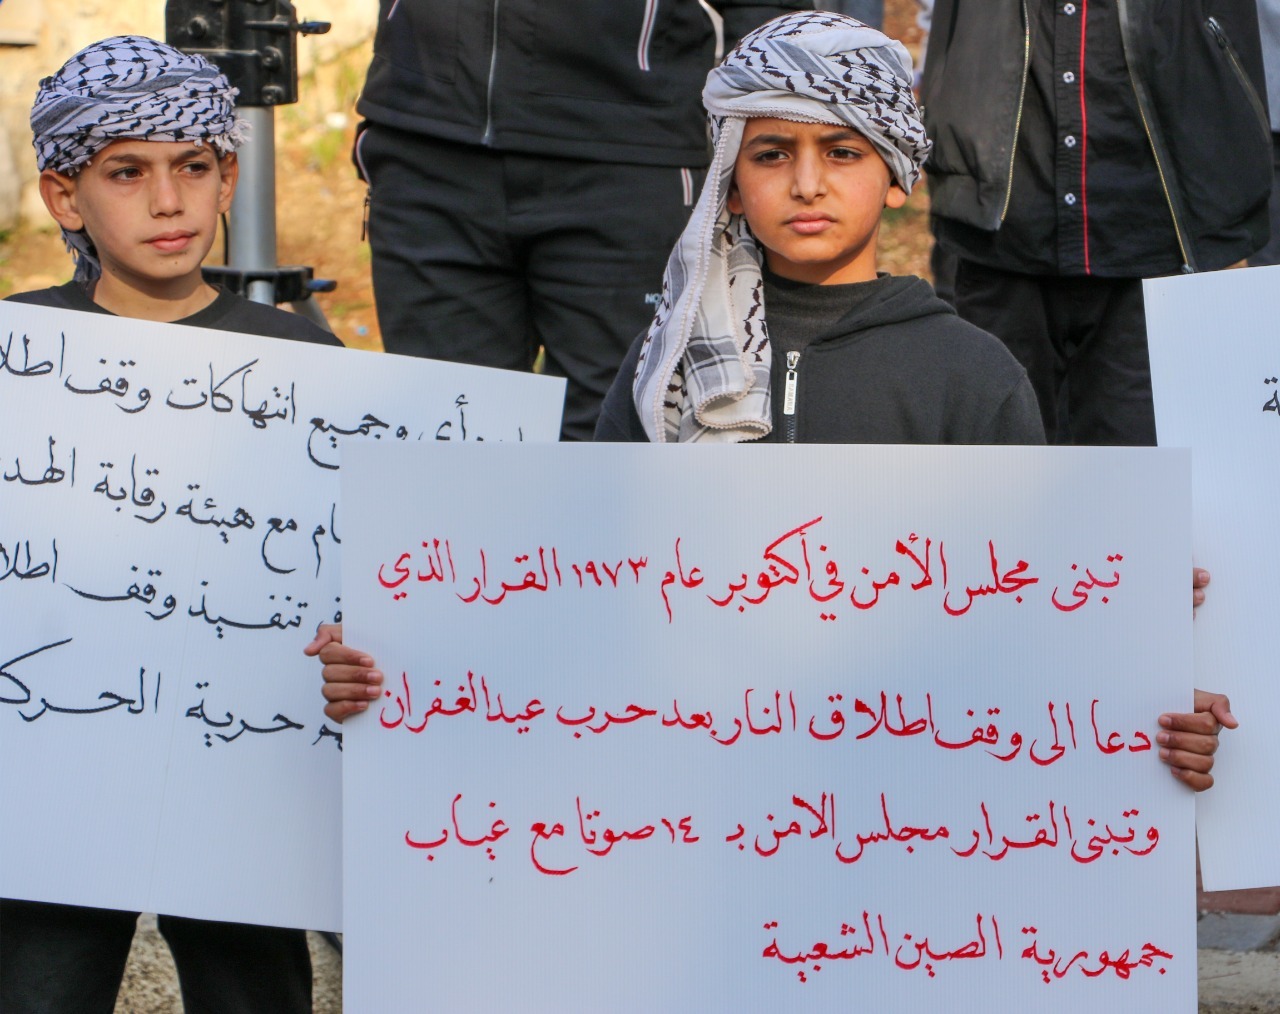 تبنى مجلس الأمن في أكتوبر عام ١٩٧٣ القرار الذي
دعا الى وقف اطلاق النار بعد حرب عيد الغفران
وتبنى القرار مجلس الامن بـ ١٤ صوتا مع غياب
جمهورية الصين الشعبية
أي وجميع انتهاكات وقف
مع هيئة رقابة
تنفيذ وقف
حرية